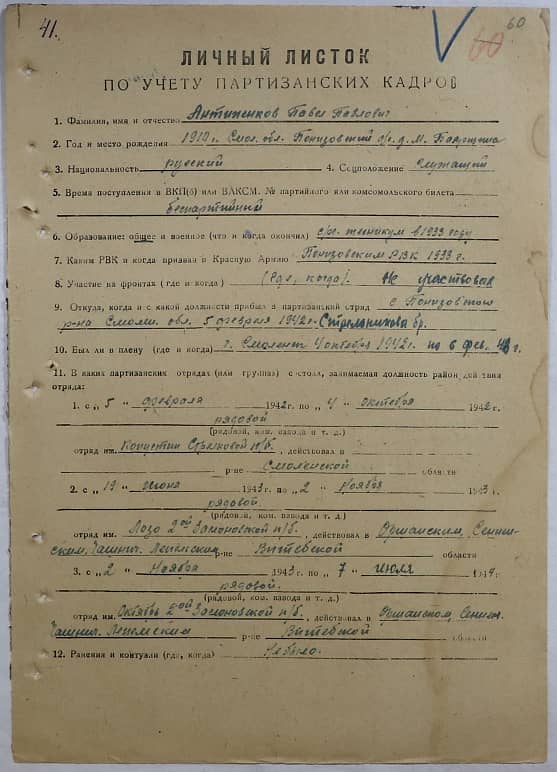 41.
60
60
ЛИЧНЫЙ ЛИСТОК
ПО УЧЕТУ ПАРТИЗАНСКИХ КАДРОВ
1. Фамилия, имя и отчество Антипенков Павел Павлович
2. Год и место рождения 1912 г. Смол. обл. Понизовский с/с. д. М.
3. Национальность русский 4. Соцположение служащий
5. Время поступления в ВКП(б) или ВЛКСМ. № партийного или комсомольского билета
беспартийный
6. Образование: общее и военное (что и когда окончил) с/х. техникум в 1933 году
7. Каким РВК и когда призван в Красную Армию Понизовским РВК 1933 г.
8. Участие на фронтах (где и когда) (где, когда). Не участвовал
9. Откуда, когда и с какой должности прибыл в партизанский отряд с Понизовского
р-на Смолен. обл. 5 февраля 1942 г. Стрельникова бр.
10. Был ли в плену (где и когда) г. Смоленск 4 октября 1942 г. по 6 фев. 43 г.
11. В каких партизанских отрядах (или группах) состоял, занимаемая должность район действия
отряда:
1. с „5 " февраля 1942 г. по „4 " октября 1942 г.
рядовой
(рядовой, ком. взвода и т. д.)
отряд им. п/б. , действовал в
р-не Смоленской области
2. с „19 " июня 1943 г. по „2 " ноября 1943 г.
рядовой.
(рядовой, ком. взвода и т. д.)
отряд им. Лазо 2ой Заслоновской п/б. , действовал в Оршанским, Сеннен-
ским, Чашнич. Лепельским р-не Витебской области
3. с „2 " ноября 1943 г. по „7 " июля 1944 г.
рядовой.
(рядовой, ком. взвода и т. д.)
отряд им. Октябрь 2ой Заслоновской п/б. , действовал в Оршанском, Сеннен.
Чашнич. Лепельским р-не Витебской области
12. Ранения и контузии (где, когда) Не было.